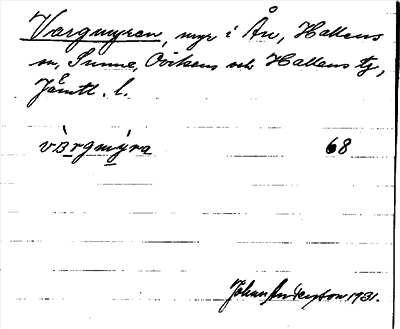 Vargmyren, myr i Ån, Hallens
sn, Sunne, Ovikens och Hallens tg,
Jämtl. l.
vàrgmýra 68
Johan Anderson 1931.